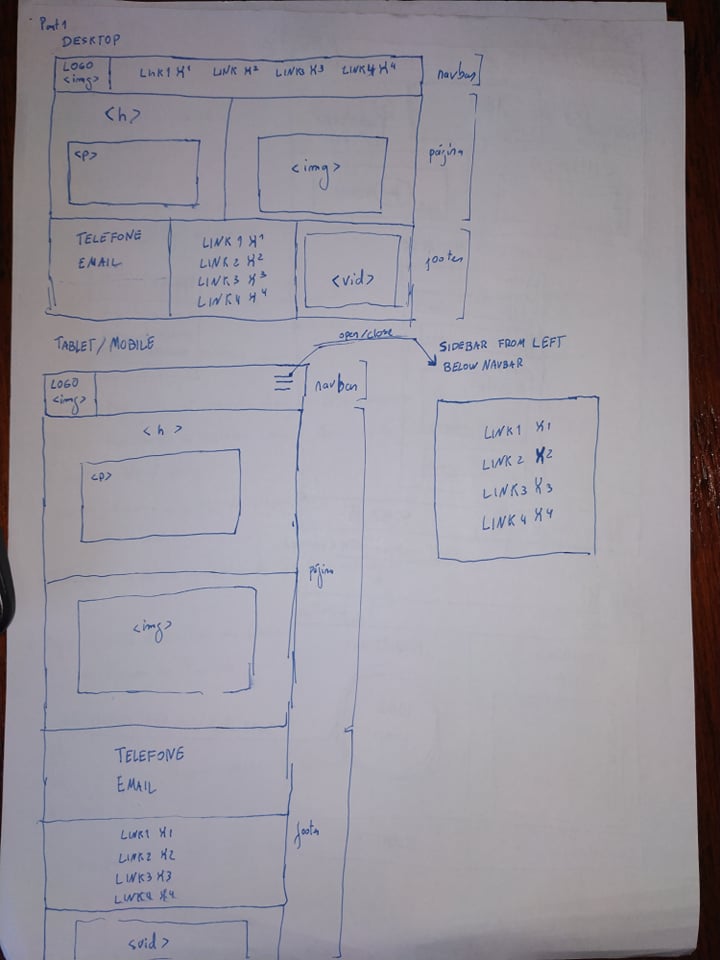 Part 1
DESKTOP
LOGO
<img>
LINK1 X1 LINK X2 LINK3 X3 LINK4 X4
navbar
<h>
<p>
<img>
página
TELEFONE
EMAIL
LINK 1 X1
LINK 2 X2
LINK 3 X3
LINK 4 X4
<vid>
footer
TABLET/MOBILE
open/close
SIDEBAR FROM LEFT
BELOW NAVBAR
LOGO
<img>
navbar
LINK1 X1
LINK 2 X2
LINK3 X3
LINK 4 X4
<h>
<p>
página
<img>
TELEFONE
EMAIL
LINK1 X1
LINK2 X2
LINK3 X3
LINK4 X4
footer
<vid>